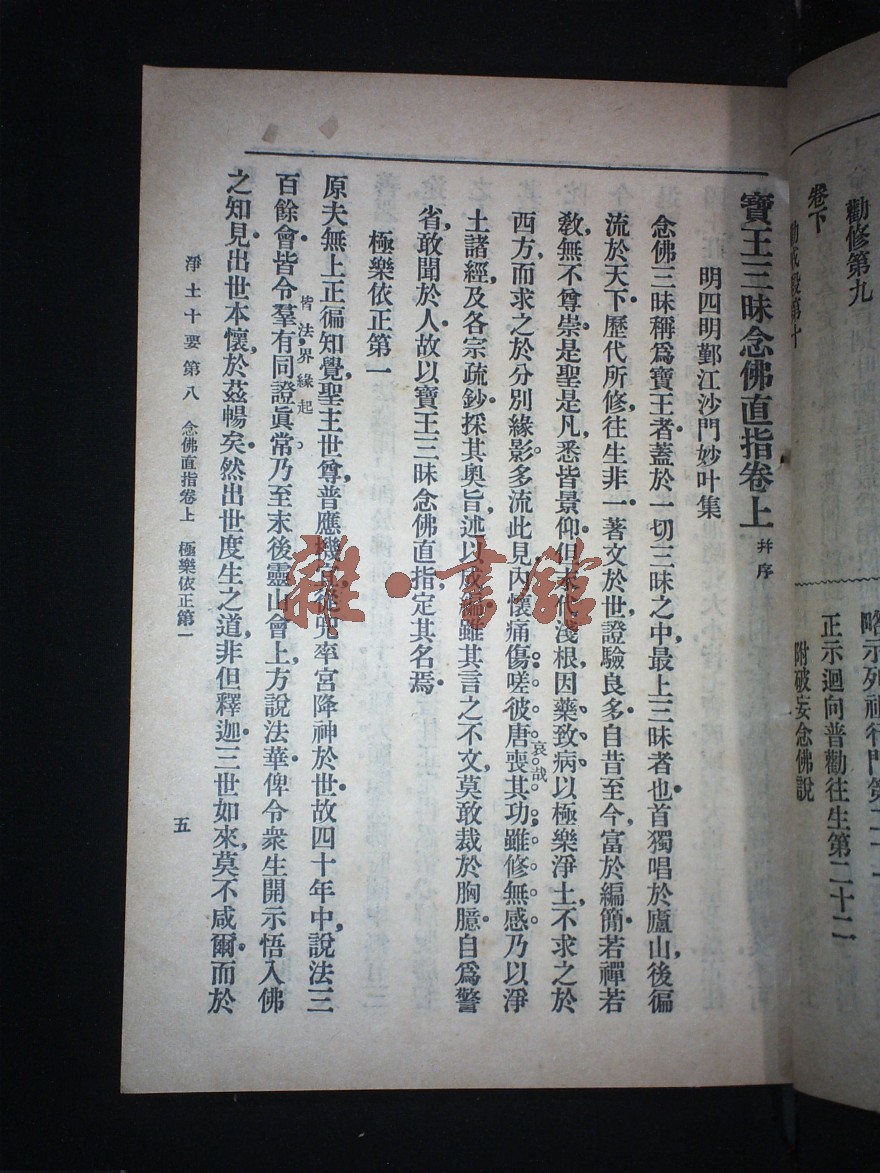 略示列祖行門第二十一
正示迴向普勸往生第二十二
附破妄念佛說
勸修第九
卷下
勸戒殺第十
寶王三昧念佛直指卷上 幷序
明四明鄞江沙門妙叶集
念佛三昧稱爲寶王者,蓋於一切三昧之中,最上三昧者也首獨唱於廬山,後徧
流於天下歷代所修往生非一著文於世證驗良多自昔至今富於編簡若禪若
教,無不尊崇是聖是凡,悉皆景仰但末代淺根,因藥致病以極樂淨土,不求之於
西方,而求之於分別緣影多流此見,內懷痛傷嗟彼唐喪其功,雖修無感乃以淨
哀哉
土諸經,及各宗疏鈔採其奧旨,述以成編雖其言之不文,莫敢裁於胸臆自爲警
省,敢聞於人故以寶王三昧念佛直指,定其名焉
極樂依正第一
原夫無上正徧知覺,聖主世尊,普應機宜,從兜率宮降神於世故四十年中,說法三
百餘會皆令羣有同證眞常乃至末後靈山會上方說法華俾令衆生開示悟入佛
皆法界緣起
之知見出世本懷,於茲暢矣然出世度生之道,非但釋迦三世如來,莫不咸爾而於
淨土十要第八 念佛直指卷上 極樂依正第一 五
雜·書館